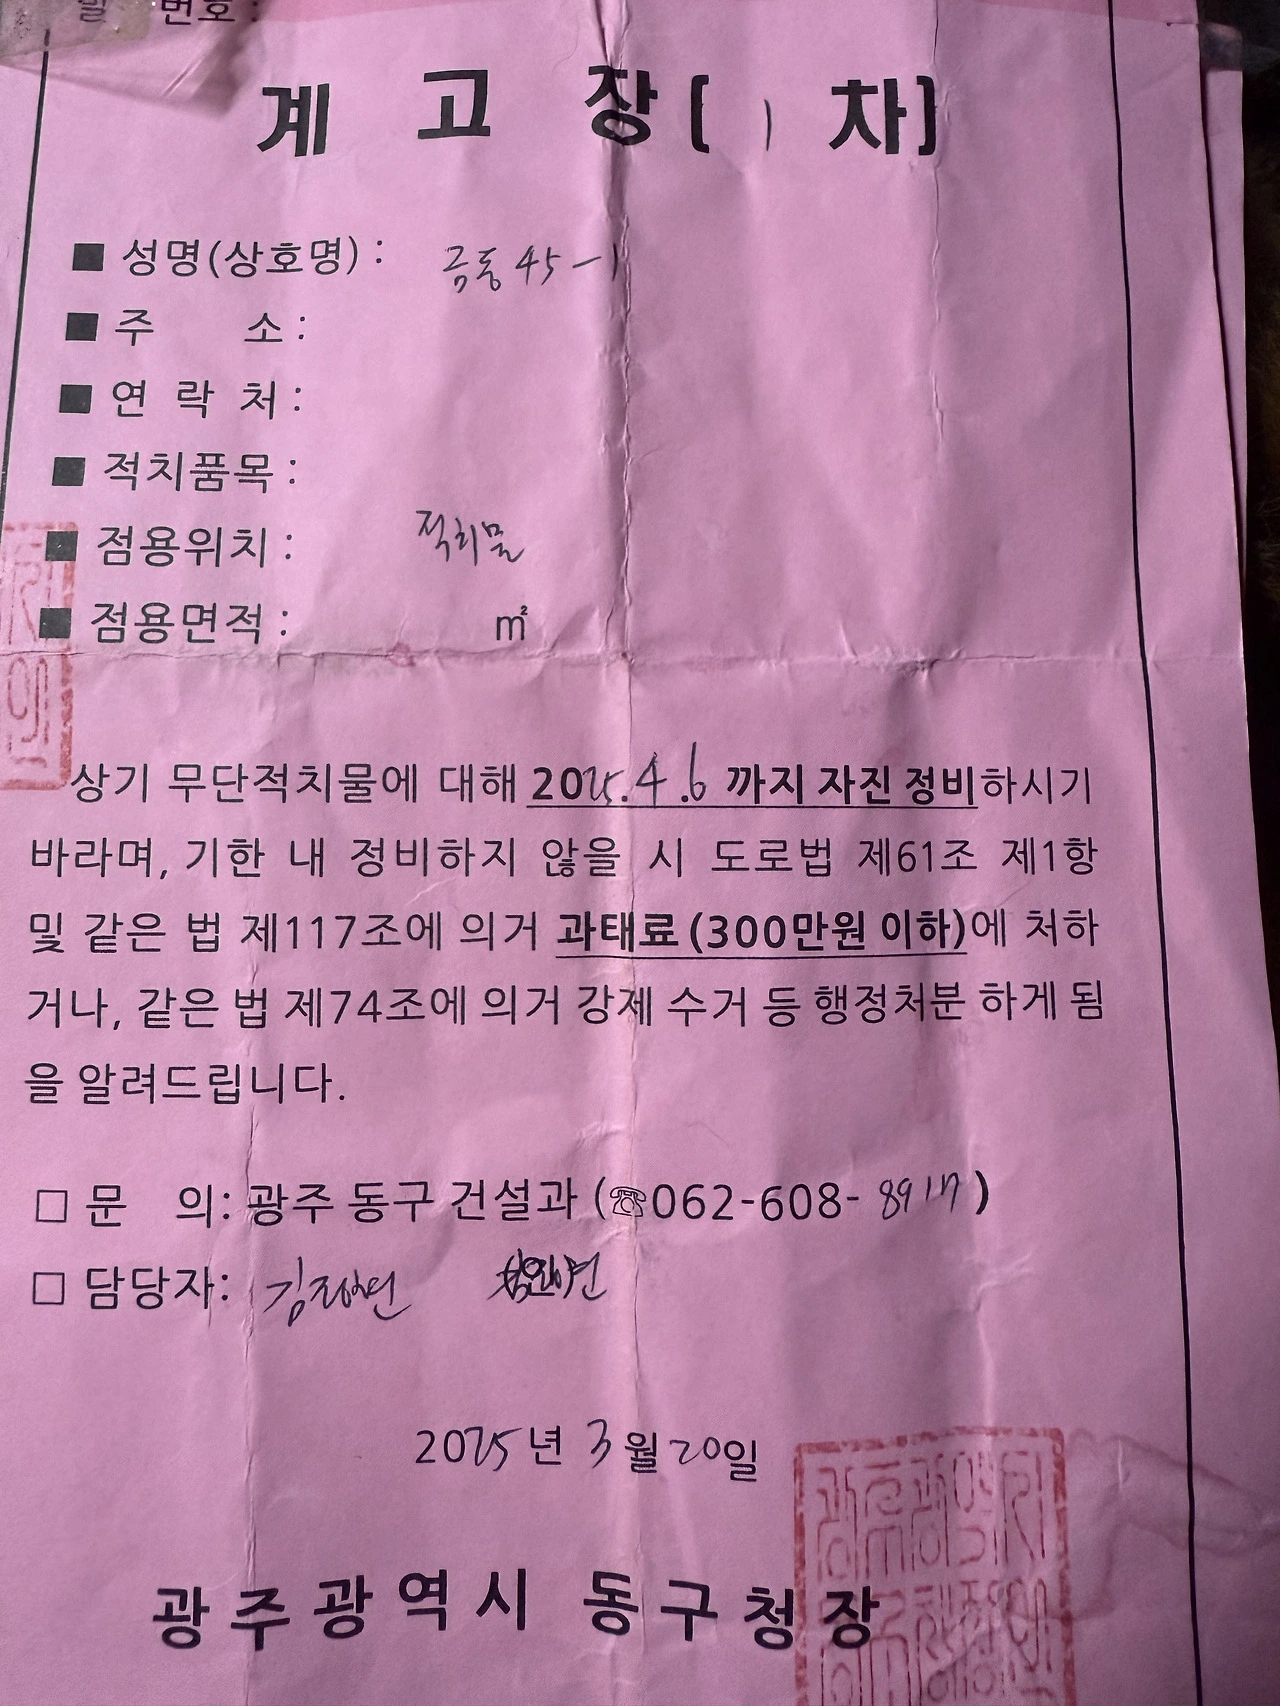 번호 :
계 고 장 [ 1 차]
■ 성명(상호명) : 금동 45-1
■ 주 소 :
■ 연 락 처 :
■ 적치품목 :
■ 점용위치 : 적치물
■ 점용면적 : ㎡
상기 무단적치물에 대해 2025.4.6 까지 자진 정비하시기
바라며, 기한 내 정비하지 않을 시 도로법 제61조 제1항
및 같은 법 제117조에 의거 과태료 (300만원 이하)에 처하
거나, 같은 법 제74조에 의거 강제 수거 등 행정처분 하게 됨
을 알려드립니다.
□ 문 의: 광주 동구 건설과 (☏062-608- 8917)
□ 담당자: 김
2025년 3월 20일
광주광역시 동구청장